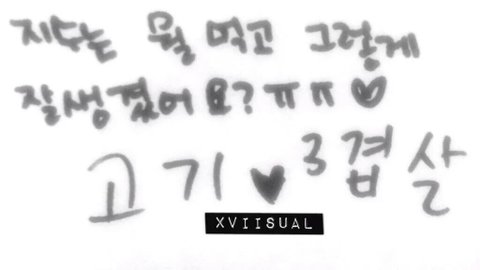 지수는 뭘 먹고 그렇게
잘생겼어요?ㅠㅠ♥
고기♥3겹살
XVIISUAL